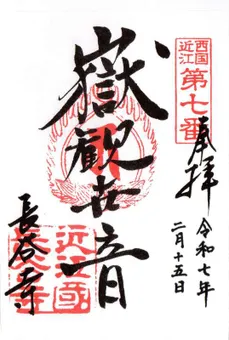 西国
近江
第七番
奉拝
令和七年
二月十五日
嶽観世音
長谷寺
近江國